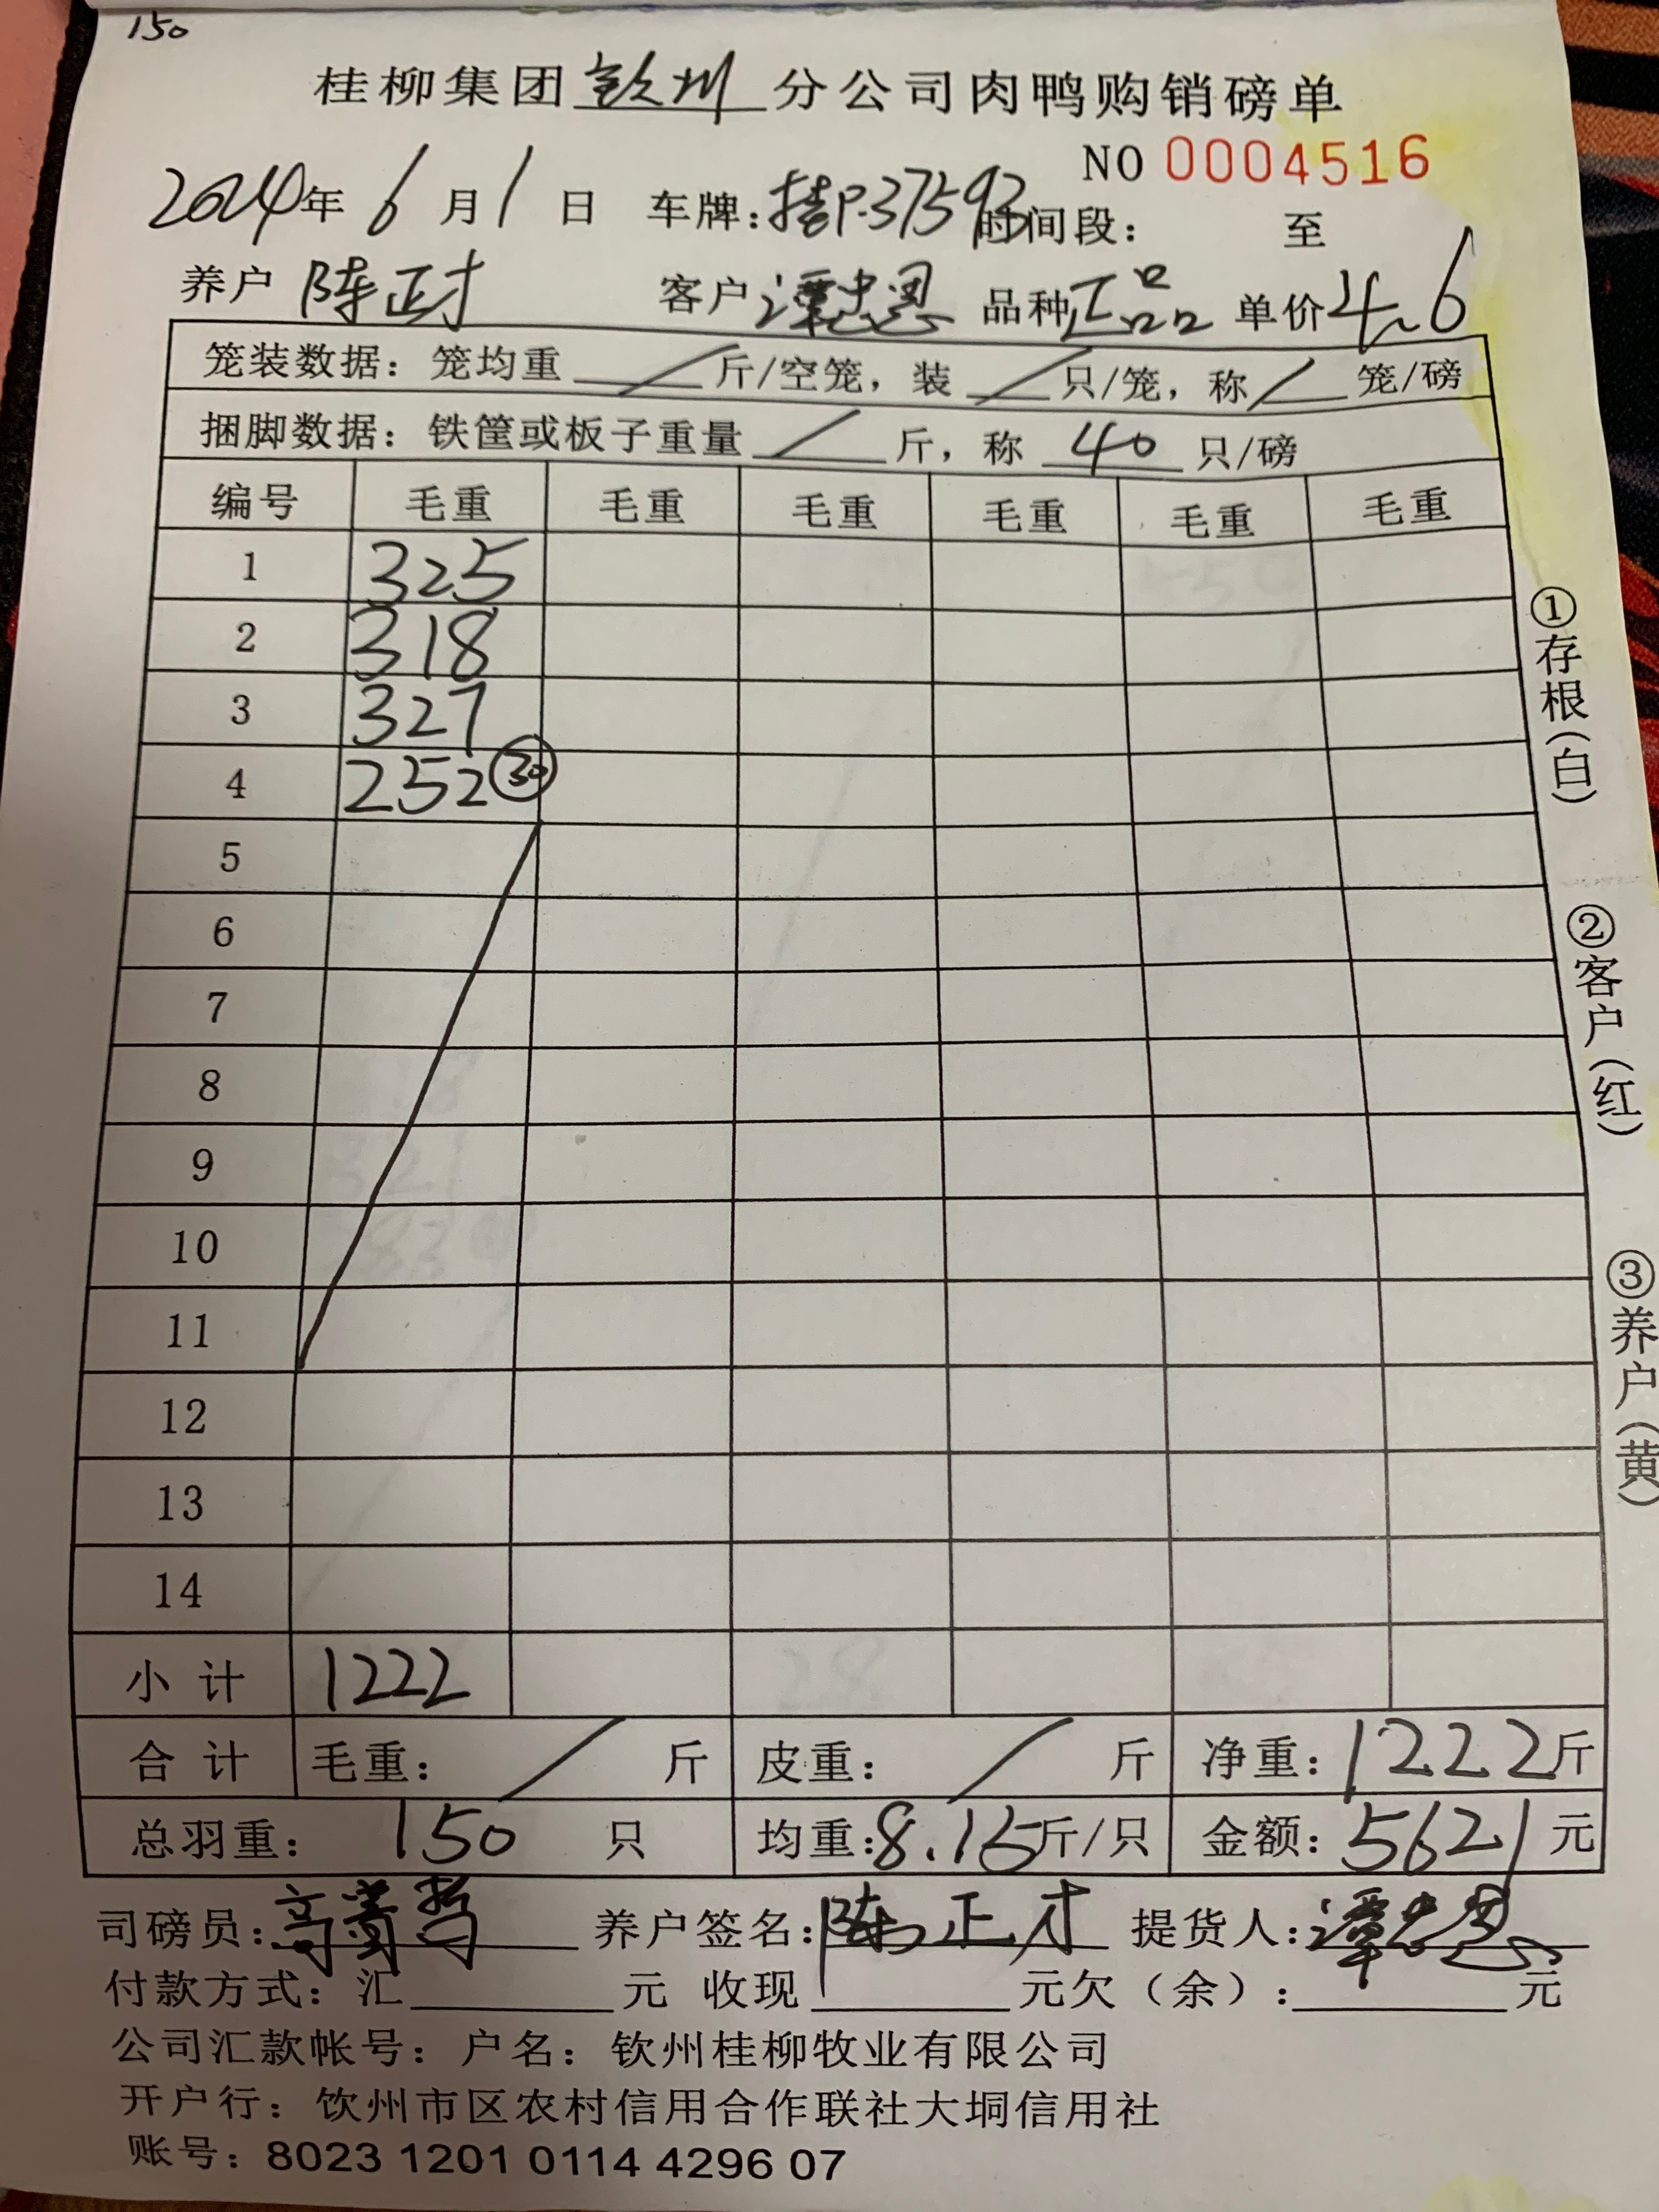 150
桂柳集团钦州分公司肉鸭购销磅单
NO 0004516
2024年6月1日 车牌:桂P.37593 时间段: 至
养户 陈正才 客户 谭忠恩 品种 正品 单价 4.6
笼装数据: 笼均重 / 斤/空笼, 装 / 只/笼, 称 / 笼/磅
捆脚数据: 铁筐或板子重量 / 斤, 称 40 只/磅
编号 毛重 毛重 毛重 毛重 毛重 毛重
1 325
2 318
3 327
4 252 ㉚
5
6
7
8
9
10
11
12
13
14
小计 1222
合计 毛重: / 斤 皮重: / 斤 净重: 1222斤
总羽重: 150 只 均重:8.15斤/只 金额: 5621元
司磅员: 养户签名:陈正才 提货人:谭忠恩
付款方式: 汇 元 收现 元欠(余): 元
公司汇款帐号: 户名: 钦州桂柳牧业有限公司
开户行: 钦州市区农村信用合作联社大垌信用社
账号: 8023 1201 0114 4296 07
①存根(白)
②客户(红)
③养户(黄)